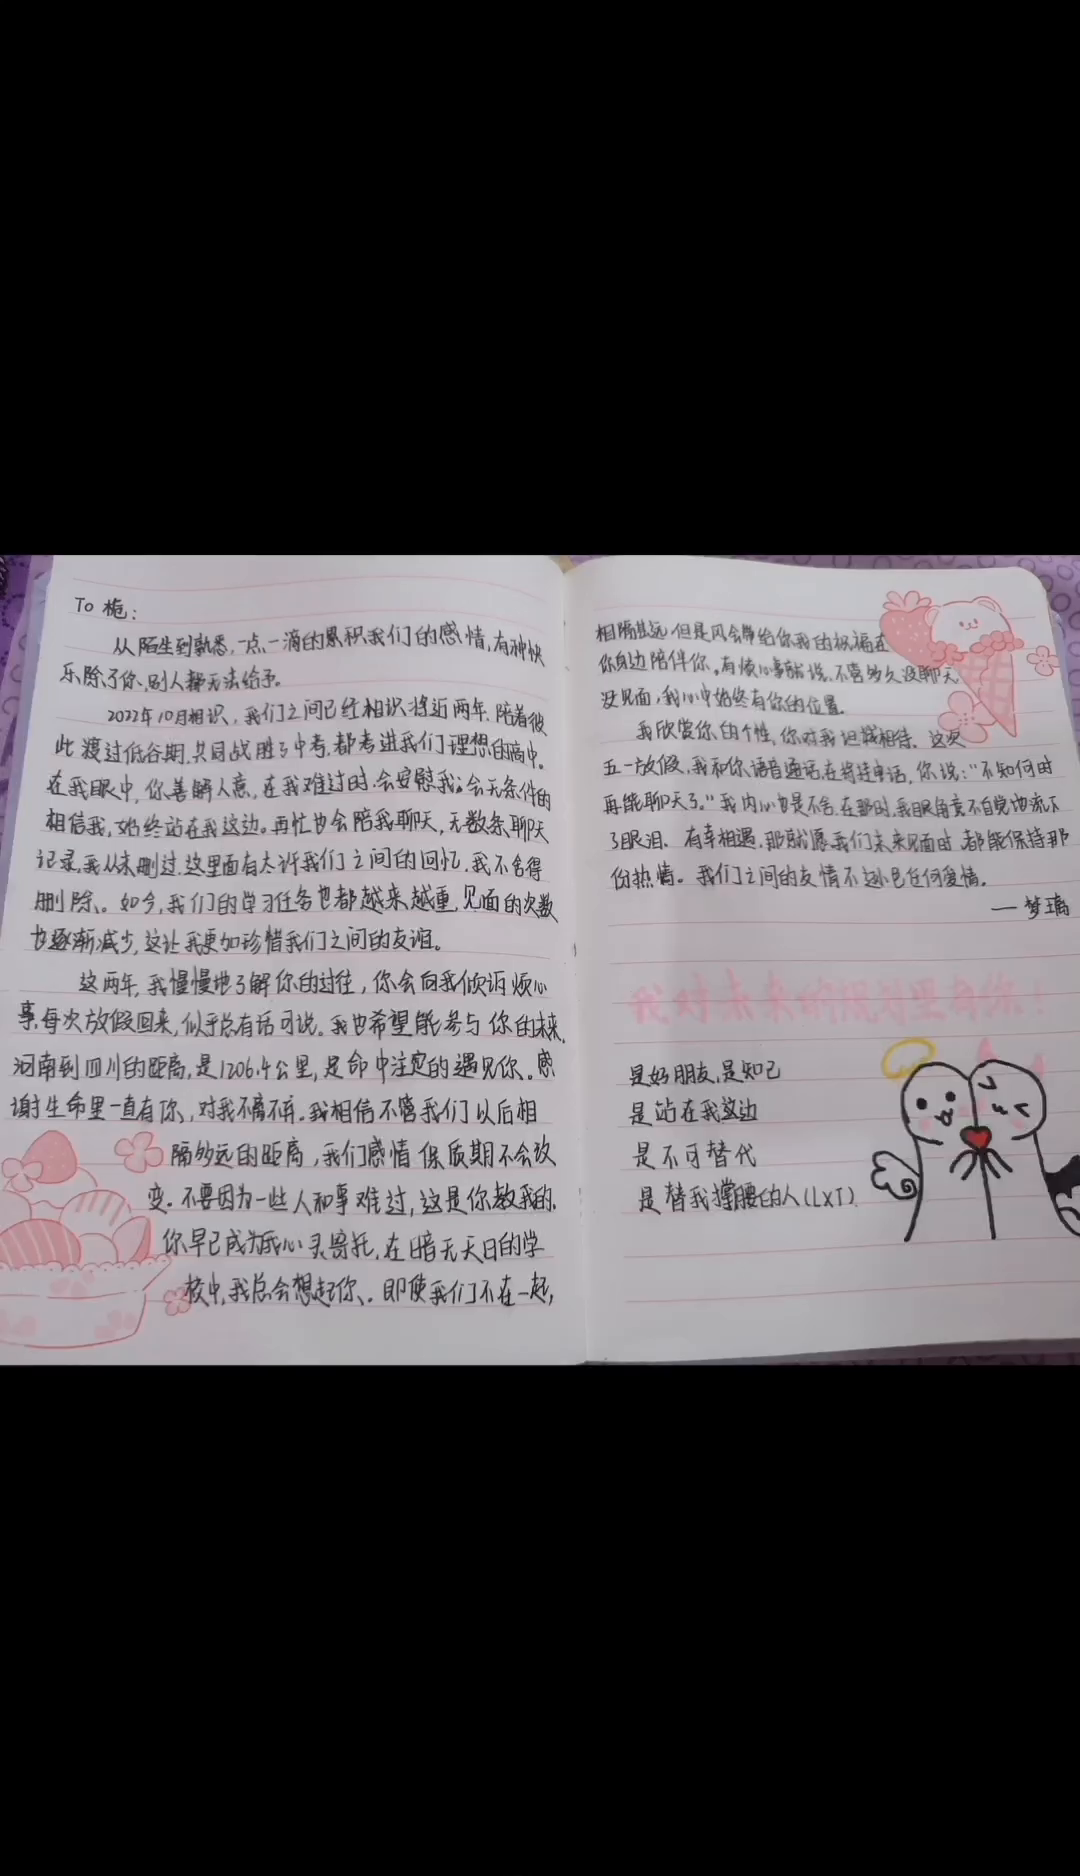 To 桅：
从陌生到熟悉，一点一滴的累积我们的感情，有种快
乐除了你，别人都无法给予。
2022年10月相识，我们之间已经相识将近两年，陪着彼
此渡过低谷期，共同战胜了中考，都考进我们理想的高中。
在我眼中，你善解人意，在我难过时，会安慰我；会无条件的
相信我，始终站在我这边。再忙也会陪我聊天，无数条聊天
记录，我从未删过，这里面有太许我们之间的回忆，我不舍得
删除。如今，我们的学习任务也都越来越重，见面的次数
也逐渐减少，这让我更加珍惜我们之间的友谊。
这两年，我慢慢地了解你的过往，你会向我倾诉烦心
事，每次放假回来，似乎总有话可说。我也希望能参与你的未来，
河南到四川的距离，是1206.4公里，是命中注定的遇见你。感
谢生命里一直有你，对我不离不弃。我相信不管我们以后相
隔多远的距离，我们感情保质期不会改
变。不要因为一些人和事难过，这是你教我的，
你早已成为我心灵寄托，在暗无天日的学
校中，我总会想起你。即使我们不在一起，
相隔甚远，但是风会带给你我的祝福在
你身边陪伴你。有烦心事就说，不管多久没聊天
没见面，我心中始终有你的位置。
我欣赏你的个性，你对我坦诚相待。这次
五一放假，我和你语音通话，在将挂电话，你说：“不知何时
再能聊天了。”我内心也是不舍，在那时，我眼角竟不自觉地流下
了眼泪。有幸相遇，那就愿我们未来见面时，都能保持那
份热情。我们之间的友情不逊色任何爱情。
——梦瑀
我对未来的规划里有你！
是好朋友，是知己
是站在我这边
是不可替代
是替我撑腰的人(LXT)